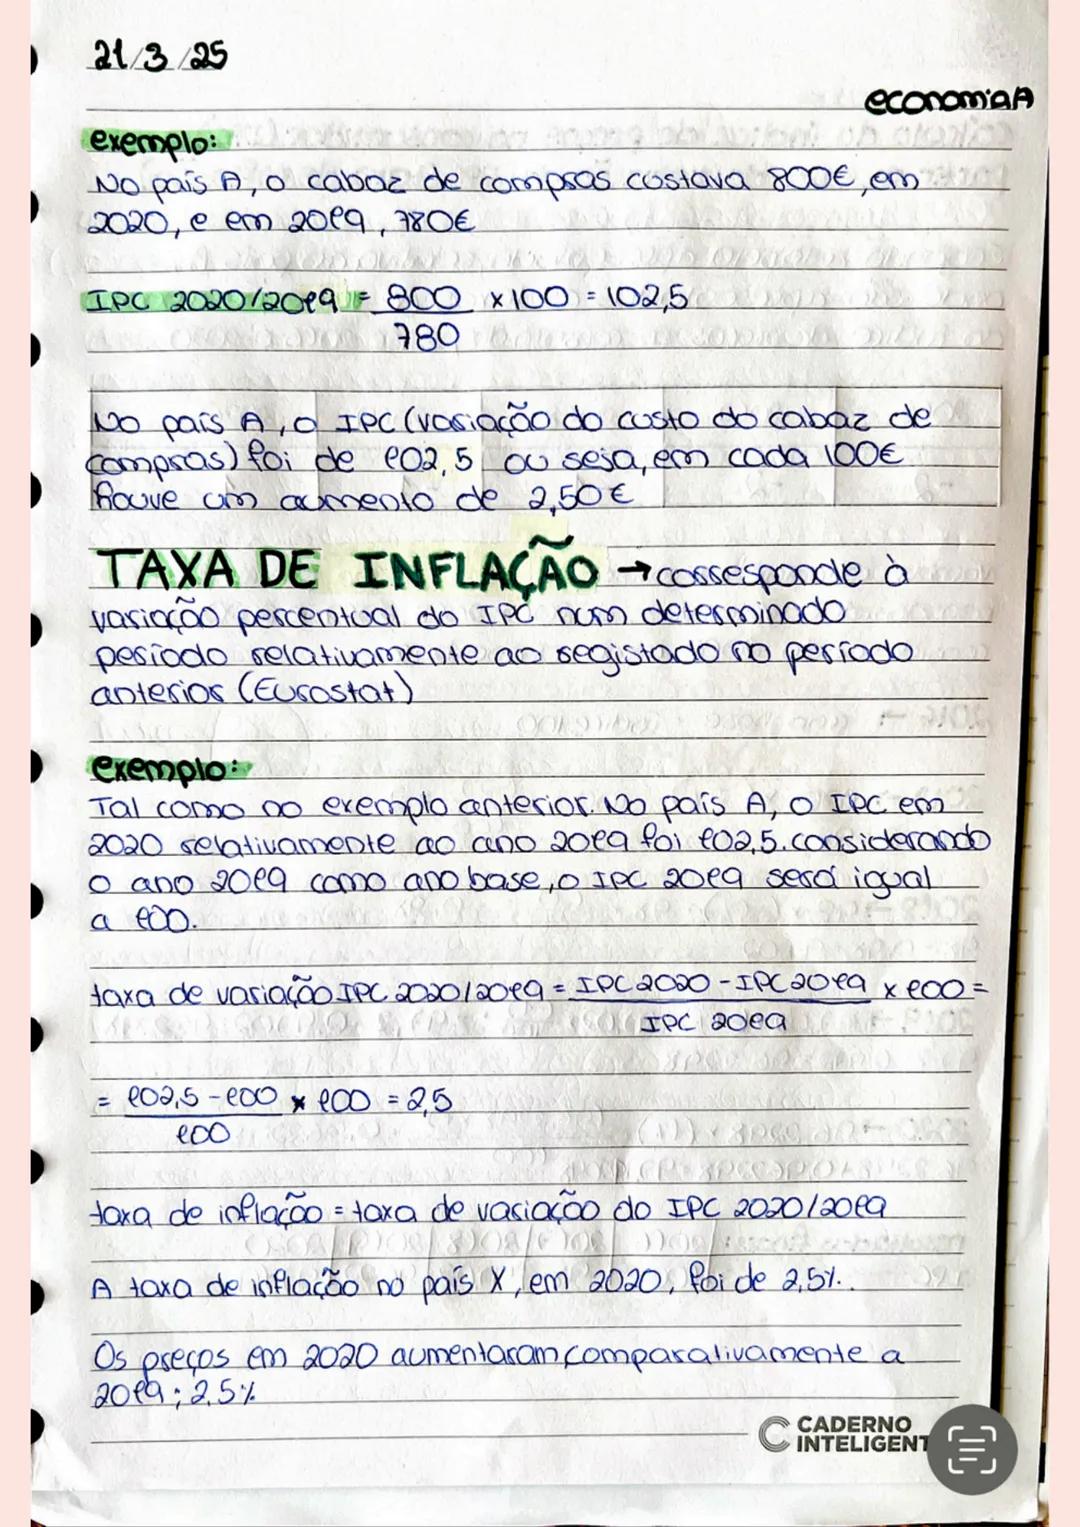 21/3/25
economia A
exemplo:
No país A, o cabaz de compras costava 800€, em
2020, e em 2019, 780€
IPC 2020/2019 = 800 x 100 = 102,5
780
No país A, o IPC (variação do custo do cabaz de
compras) foi de 102,5 ou seja, em cada 100€
houve um aumento de 2,50€
TAXA DE INFLAÇÃO → corresponde à
variação percentual do IPC num determinado
período relativamente ao registado no período
anterior (Eurostat)
exemplo:
Tal como no exemplo anterior. No país A, o IPC em
2020 relativamente ao ano 2019 foi 102,5. considerando
o ano 2019 como ano base, o IPC 2019 será igual
a 100.
taxa de variação IPC 2020/2019 = IPC 2020 - IPC 2019 x 100 =
IPC 2019
= 102,5 - 100 x 100 = 2,5
100
taxa de inflação = taxa de variação do IPC 2020/2019
A taxa de inflação no país X, em 2020, foi de 2,5%.
Os preços em 2020 aumentaram, comparativamente a
2019; 2,5%
CADERNO
INTELIGENT